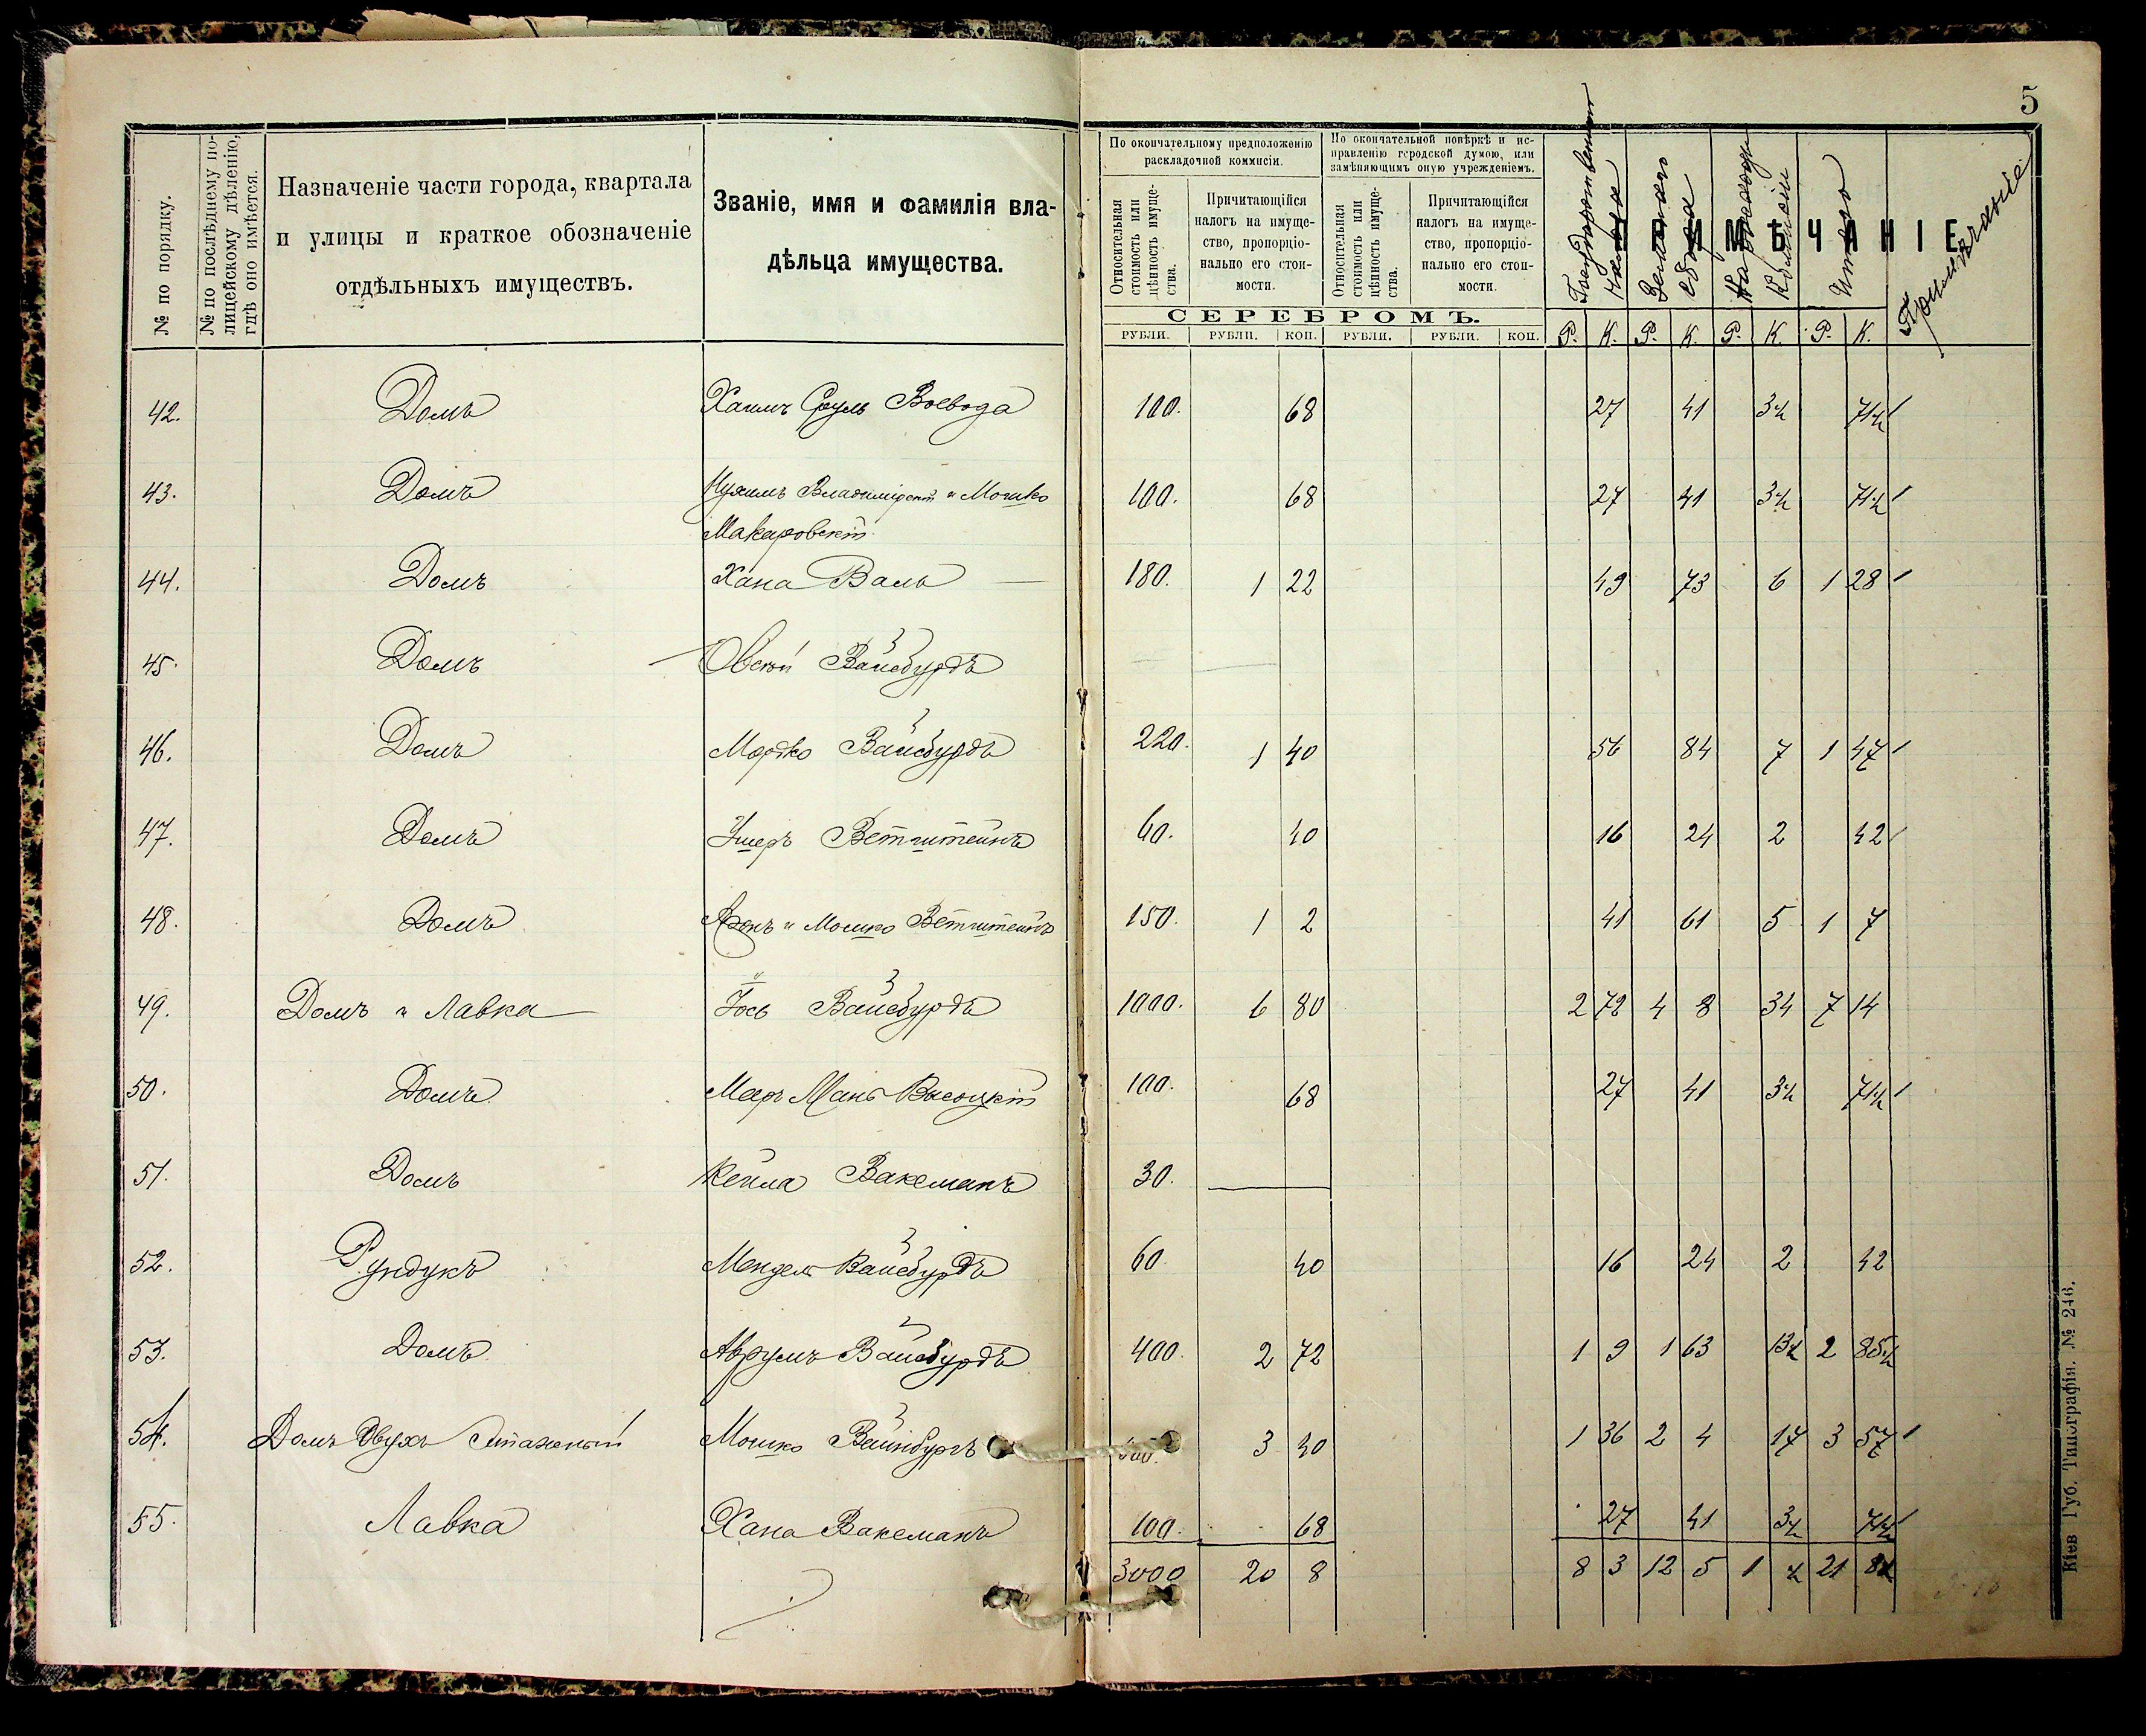 5
№ по порядку.
№ по послѣднему по-
лицейскому дѣленію,
гдѣ оно имѣется.
Назначеніе части города, квартала
и улицы и краткое обозначеніе
отдѣльныхъ имуществъ.
Званіе, имя и фамилія вла-
дѣльца имущества.
По окончательному предположенію
раскладочной коммисіи.
По окончательной повѣркѣ и ис-
правленію городской думою, или
замѣняющимъ оную учрежденіемъ.
Относительная
стоимость или
цѣнность имуще-
ства.
Причитающійся
налогъ на имуще-
ство, пропорціо-
нально его стои-
мости.
Относительная
стоимость или
цѣнность имуще-
ства.
Причитающійся
налогъ на имуще-
ство, пропорціо-
нально его стои-
мости.
ПРИМѢЧАНІЕ.
Государственнаго
налога
Земскаго
сбора
На расходы
Комисіи
Итого
Примѣчаніе
СЕРЕБРОМЪ.
РУБЛИ. РУБЛИ. КОП. РУБЛИ. РУБЛИ. КОП. Р. К. Р. К. Р. К. Р. К.
42. Домъ Хаимъ Сруль Воевода 100. 68 27 41 3½ 71½
43. Домъ Нухимъ Владимірскій и Мошко 100. 68 27 41 3½ 71½
Макаровскій
44. Домъ Хана Валь 180. 1 22 49 73 6 1 28
45. Домъ Овсей Вайсбурдъ
46. Домъ Мордко Вайсбурдъ 220. 1 40 56 84 7 1 47
47. Домъ Ушеръ Ветштейнъ 60. 40 16 24 2 42
48. Домъ Аронъ и Мошко Ветштейнъ 150. 1 2 41 61 5 1 7
49. Домъ и Лавка Іось Вайсбурдъ 1000. 6 80 2 72 4 8 34 7 14
50. Домъ Меер Мань Высоцкій 100. 68 27 41 3½ 71½
51. Домъ Кейла Ваксманъ 30.
52. Рундукъ Мендель Вайсбурдъ 60 40 16 24 2 42
53. Домъ Аврумъ Вайсбурдъ 400. 2 72 1 9 1 63 13½ 2 85½
54. Домъ двухъ этажный Мошко Вайнбургъ 500. 3 40 1 36 2 4 17 3 57
55. Лавка Хана Ваксманъ 100. 68 27 41 3½ 71½
3000 20 8 8 3 12 5 1 ½ 21 8½
Кіев Губ. Типографія. № 246.